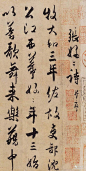 張好〻詩并序
牧大和三年佐故吏部沈
公江西幕好〻年十三始
以善歌舞来樂籍中